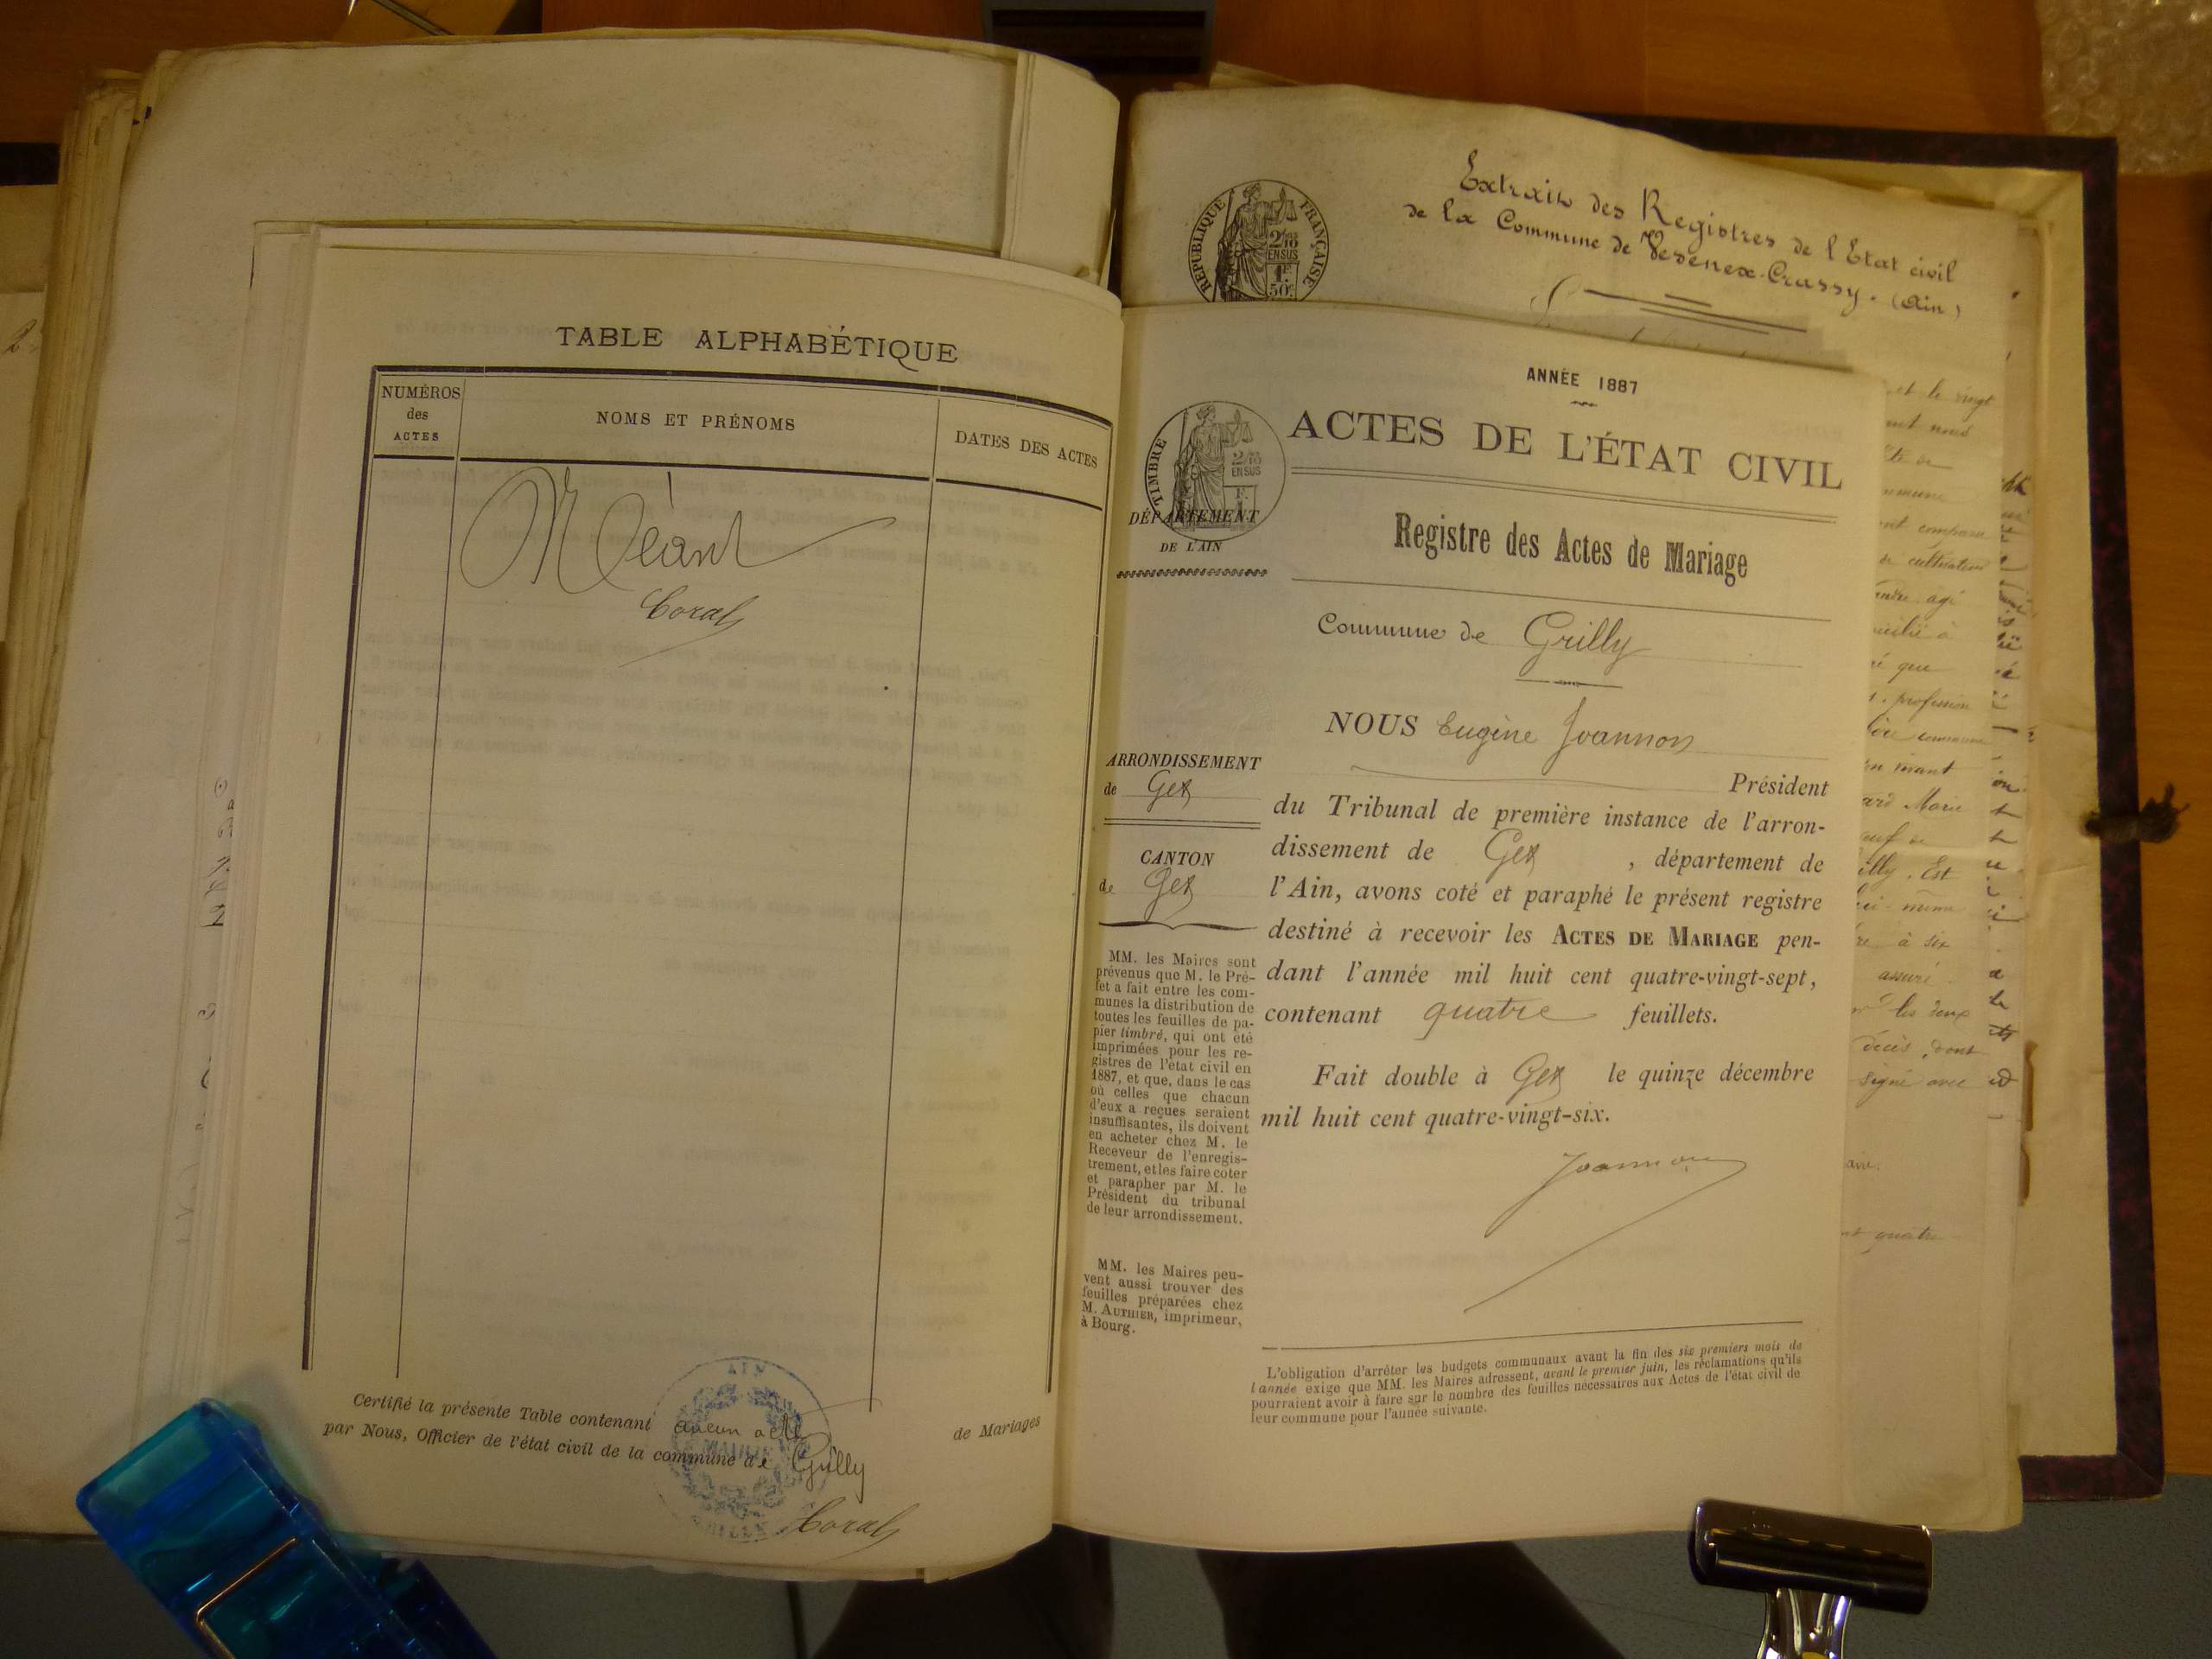 TABLE ALPHABÉTIQUE
NUMÉROS
des
ACTES
NOMS ET PRÉNOMS
DATES DES ACTES
Néant
Certifié la présente Table contenant aucun acte de Mariages
par Nous, Officier de l'état civil de la commune de Grilly
AIN
MAIRIE
Extrait des Registres de l'Etat civil
de la Commune de Vesenex-Crassy. (Ain)
RÉPUBLIQUE FRANÇAISE
2/10
EN SUS
1F
50c
ANNÉE 1887
ACTES DE L'ÉTAT CIVIL
TIMBRE
2/10
EN SUS
DÉPARTEMENT
DE L'AIN
Registre des Actes de Mariage
Commune de Grilly
NOUS Eugène Joannon
Président
du Tribunal de première instance de l'arron-
dissement de Gex, département de
l'Ain, avons coté et paraphé le présent registre
destiné à recevoir les ACTES DE MARIAGE pen-
dant l'année mil huit cent quatre-vingt-sept,
contenant quatre feuillets.
Fait double à Gex le quinze décembre
mil huit cent quatre-vingt-six.
Joannon
ARRONDISSEMENT
de Gex
CANTON
de Gex
MM. les Maires sont
prévenus que M. le Pré-
fet a fait entre les com-
munes la distribution de
toutes les feuilles de pa-
pier timbré, qui ont été
imprimées pour les re-
gistres de l'état civil en
1887, et que, dans le cas
où celles que chacun
d'eux a reçues seraient
insuffisantes, ils doivent
en acheter chez M. le
Receveur de l'enregis-
trement, et les faire coter
et parapher par M. le
Président du tribunal
de leur arrondissement.
MM. les Maires peu-
vent aussi trouver des
feuilles préparées chez
M. AUTHIER, imprimeur,
à Bourg.
L'obligation d'arrêter les budgets communaux avant la fin des six premiers mois de
l'année exige que MM. les Maires adressent, avant le premier juin, les réclamations qu'ils
pourraient avoir à faire sur le nombre des feuilles nécessaires aux Actes de l'état civil de
leur commune pour l'année suivante.
et le vingt
cultivateur
agé
que
profession
commune
Marie
Est
à six
assuré
les deux
décès, dont
signé avec
quatre